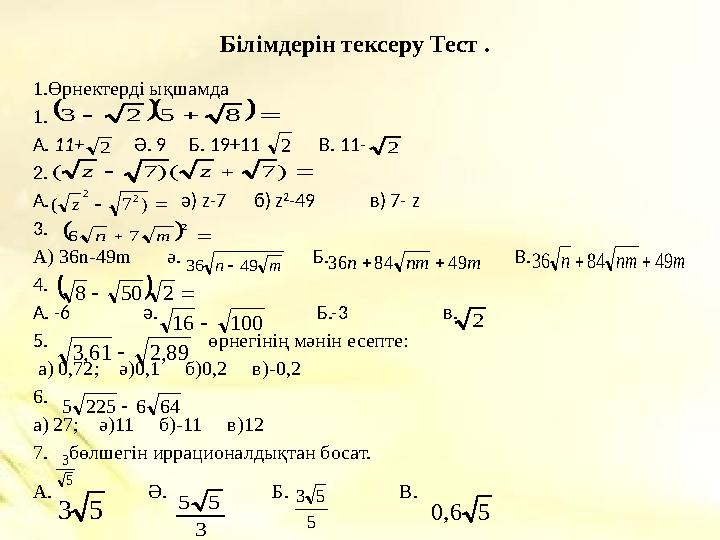 Білімдерін тексеру Тест .
1.Өрнектерді ықшамда
1. (3 − √2)(5 + √8) =
А. 11+√2 Ә. 9 Б. 19+11 √2 В. 11-√2
2. (√z − √7)(√z + √7) =
А. (√z² − √7²) = ә) z-7 б) z²-49 в) 7- z
3. (6√n + 7√m)² =
А) 36n-49m ә. 36√n − 49√m Б. 36n + 84√nm + 49m В. 36√n + 84√nm + 49√m
4. (√8 − √50)√2 =
А. -6 ә. √16 − √100 Б.-3 в. √2
5. √3,61 − √2,89 өрнегінің мәнін есепте:
а) 0,72; ә)0,1 б)0,2 в)-0,2
6. 5√225 − 6√64
а) 27; ә)11 б)-11 в)12
7. 3/√5 бөлшегін иррационалдықтан босат.
А. 3√5 Ә. 5√5/3 Б. 3√5/5 В. 0,6√5